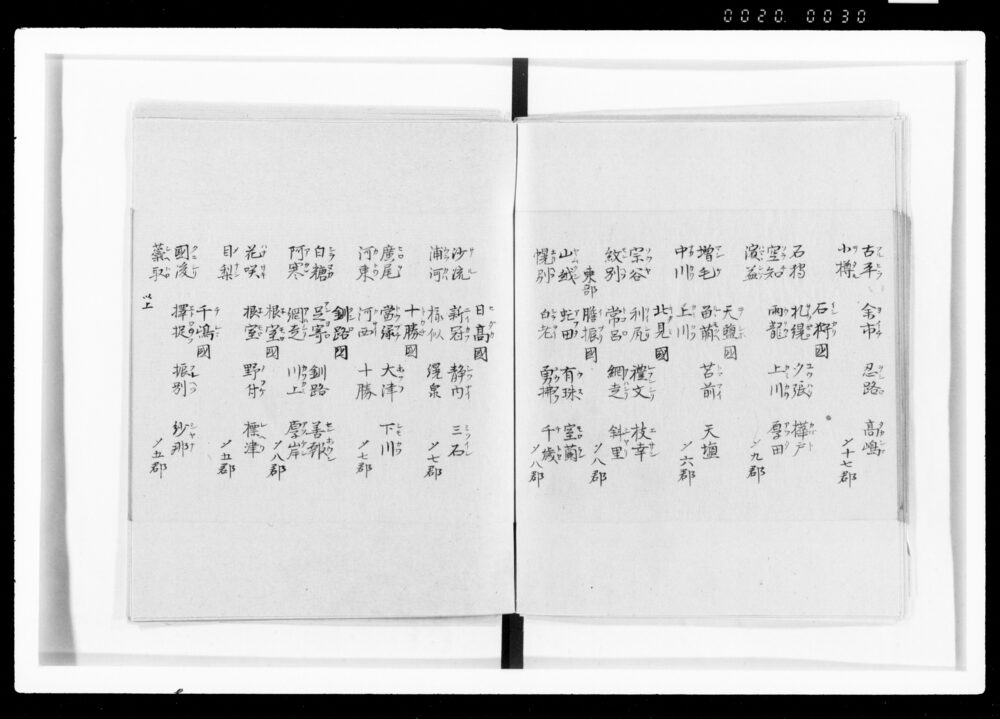 0020. 0030
古平 余市 忍路 高嶋
小樽 〆十七郡
石狩國
石狩 札幌 夕張 樺戸
空知 雨龍 上川 厚田
濱益 〆九郡
天塩國
増毛 留萠 苫前 天塩
中川 上川 〆六郡
北見國
宗谷 利尻 禮文 枝幸
紋別 常呂 網走 斜里
〆八郡
東部
膽振國
山越 虻田 有珠 室蘭
幌別 白老 勇拂 千歳
〆八郡
日高國
沙流 新冠 静内 三石
浦河 様似 幌泉 〆七郡
十勝國
廣尾 當縁 大津 下川
河東 河西 十勝 〆七郡
釧路國
白糠 足寄 釧路 善報
阿寒 網走 川上 厚岸
〆八郡
根室國
花咲 根室 野付 標津
目梨 〆五郡
千嶋國
國後 擇捉 振別 紗那
蘂取 〆五郡
以上